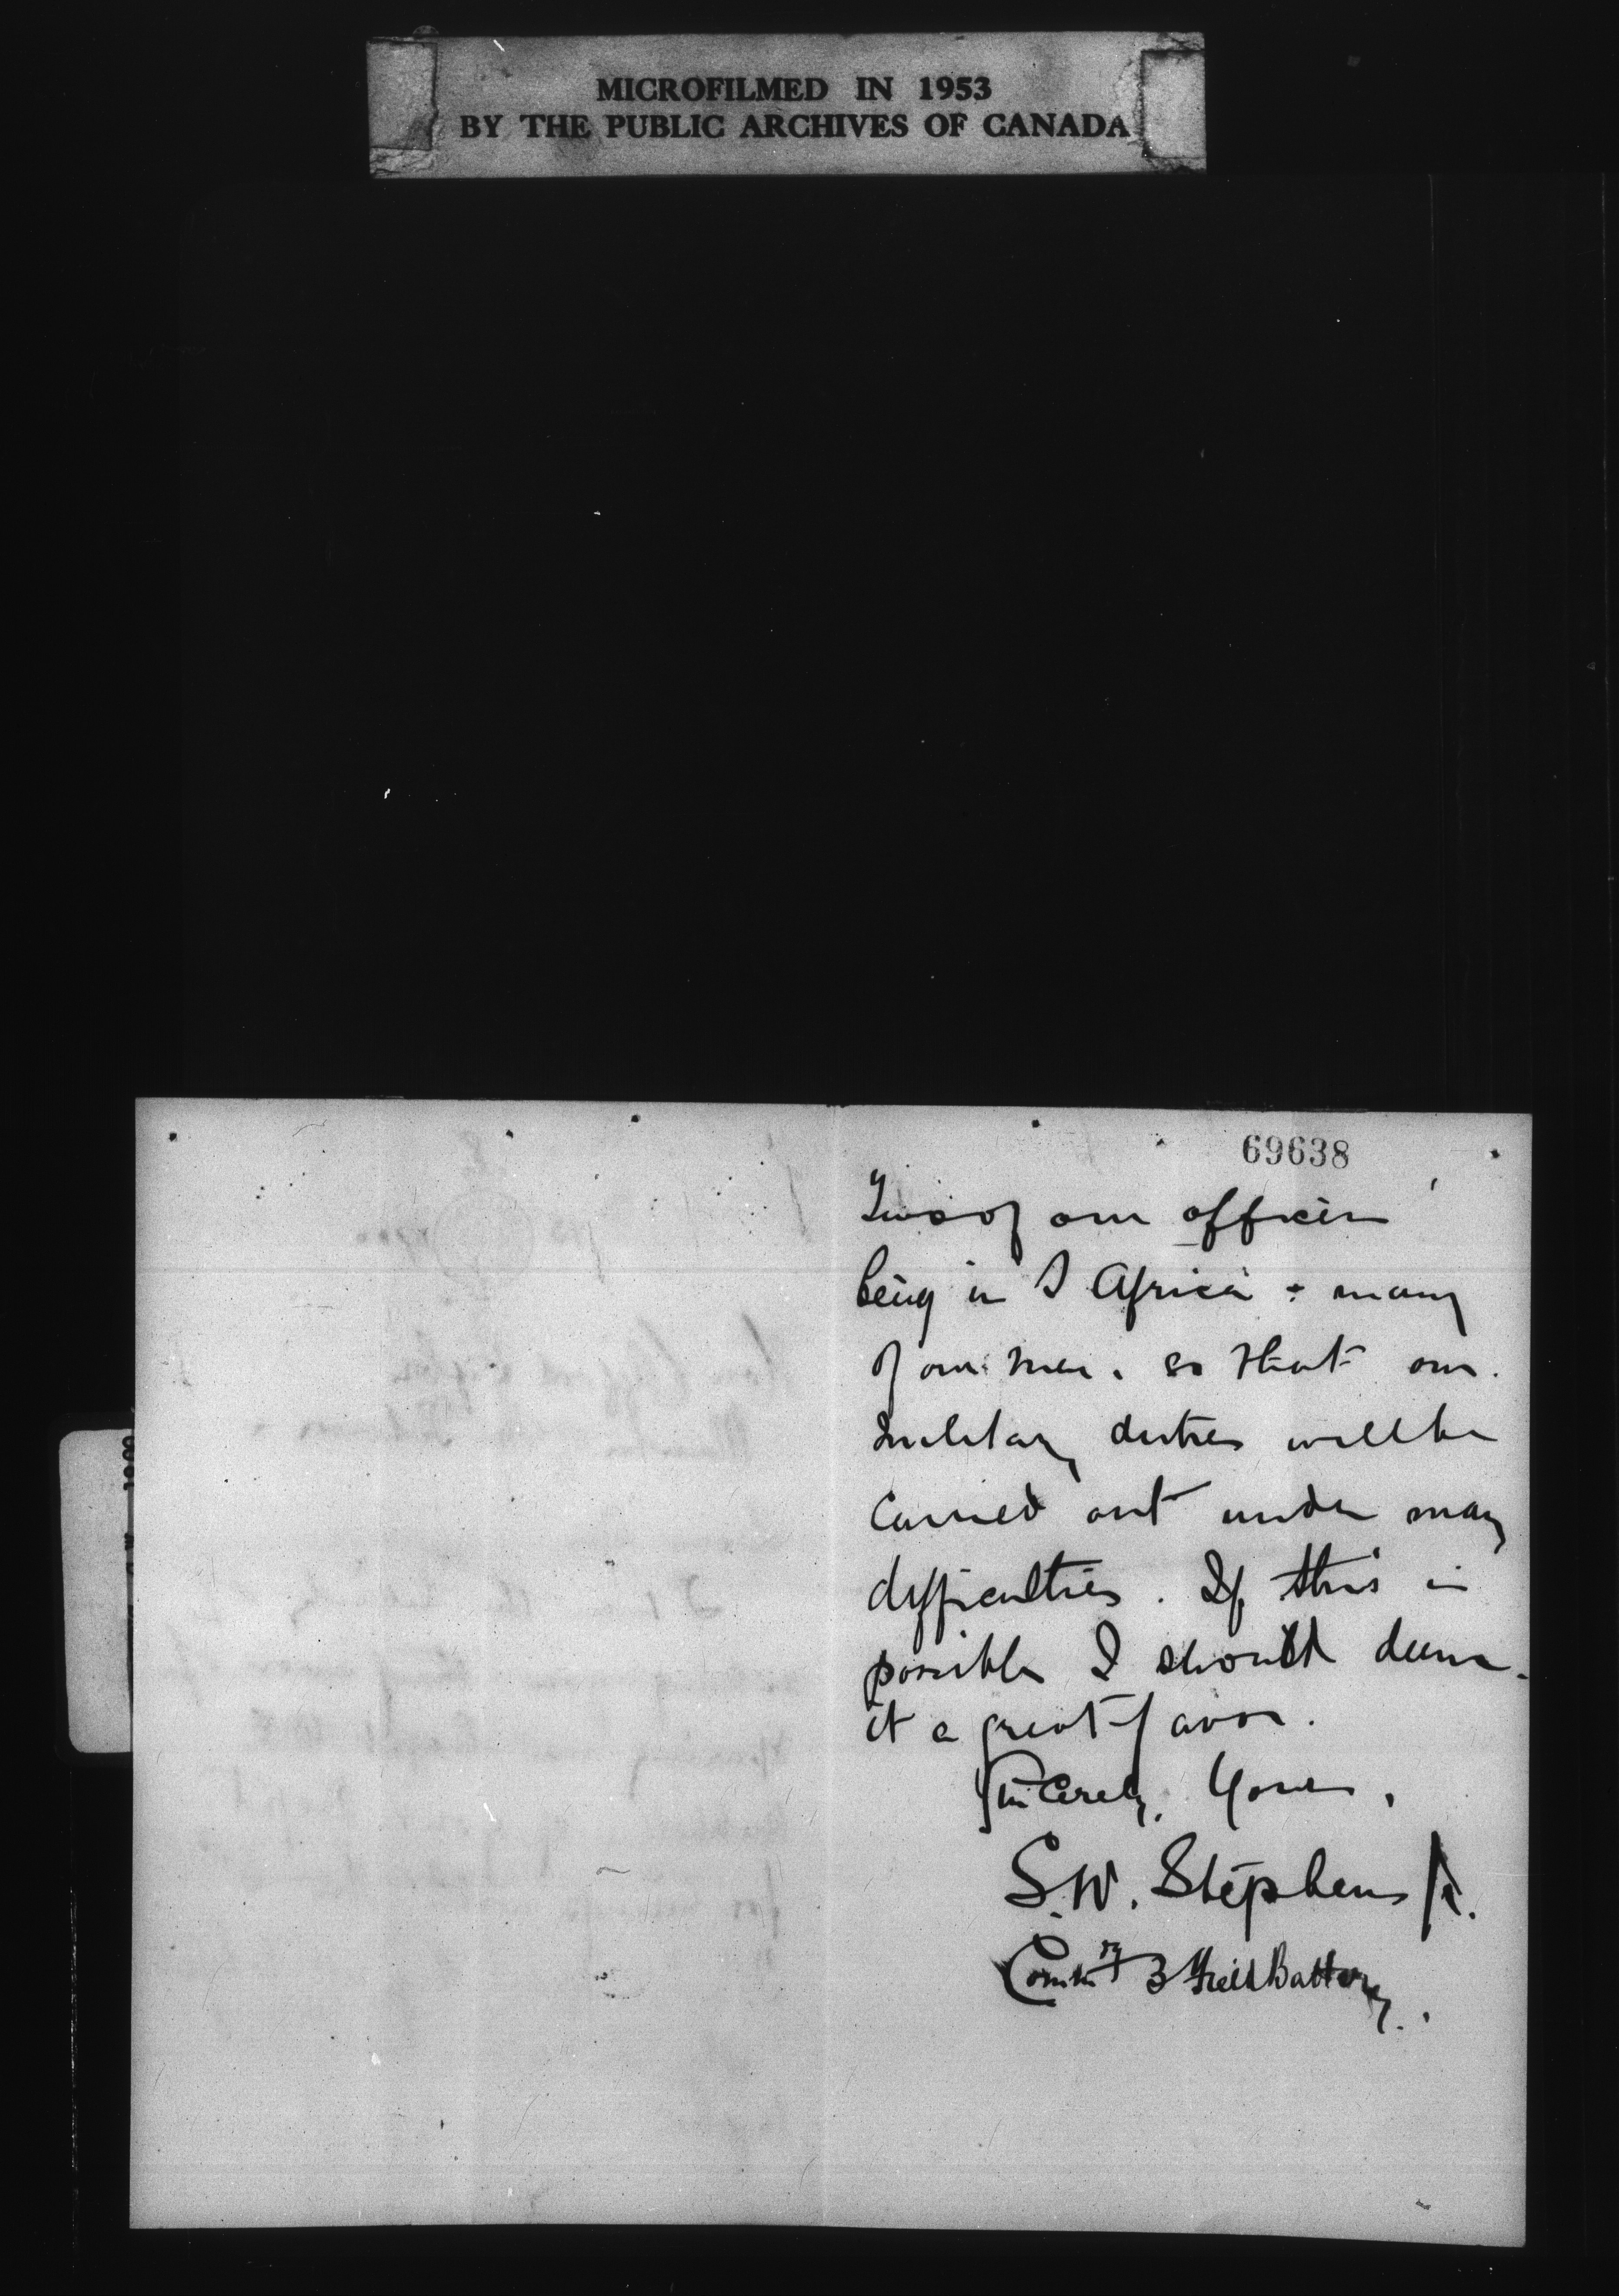 MICROFILMED IN 1953
BY THE PUBLIC ARCHIVES OF CANADA
69638
Two of our officers
being in S Africa + many
of our men. so that our
military duties will be
carried out under many
difficulties. If this is
possible I should deem
it a great favor.
Sincerely Yours,
S.W. Stephens Jr.
Comm'g 3 Field Battery.